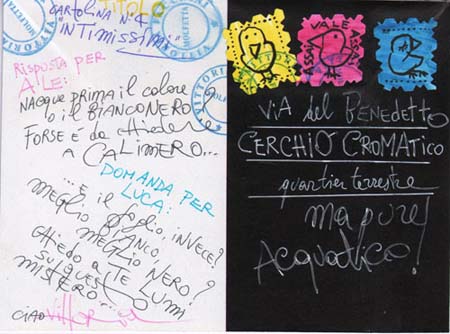 TITOLO
CARTOLINA N°4
"INTIMISSIMI"
RISPOSTA PER
ALE:
NACQUE PRIMA il colore
o il BIANCONERO?
FORSE È da chiedere
A CALIMERO...
DOMANDA PER
LUCA:
...E il foglio, INVECE?
MEGLIO BIANCO,
MEGLIO NERO?
CHIEDO A TE LUMI
SU QUESTO
MISTERO...
CIAO
MOLFETTA
VITTORI
MOLFETTA
VALE ASSAI
VIA del BENEDETTO
CERCHIO CROMATICO
quartier terrestre
ma pure
Acquatico!